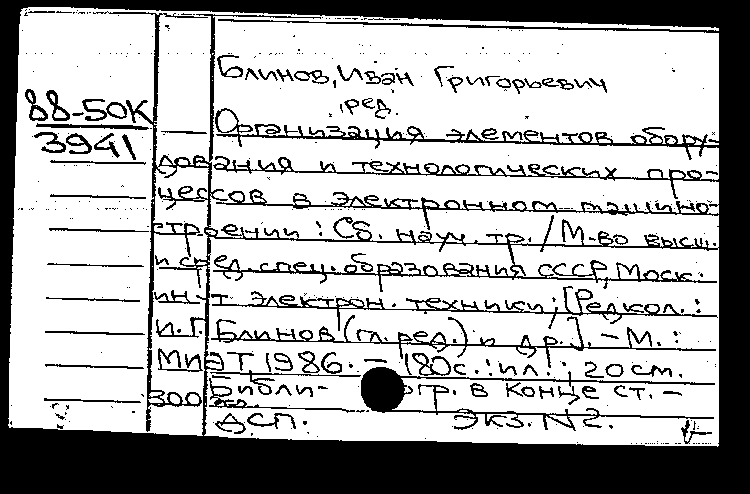 Блинов, Иван Григорьевич
, ред.
88-50К
3941
Организация элементов обору-
дования и технологических про-
цессов в электронном машино-
строении : Сб. науч. тр. / М-во высш.
и сред. спец. образования СССР, Моск.
ин-т электрон. техники; [Редкол.:
И.Г. Блинов (гл. ред.) и др.]. - М. :
МИЭТ, 1986. - 180 с. : ил. ; 20 см.
Библи- огр. в конце ст. -
300 экз.
ДСП. Экз. N 2.